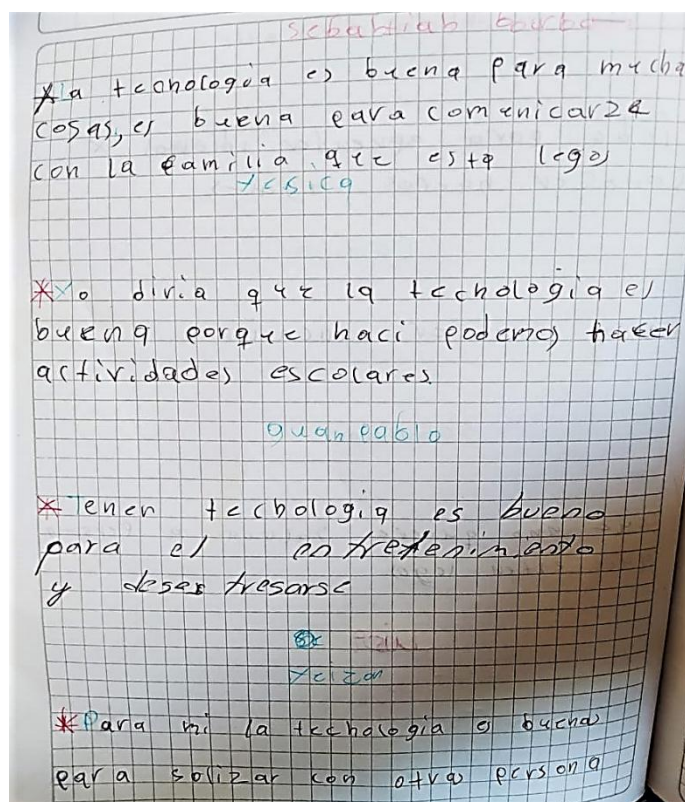 sebahtiab
*la tconologia es buena para mucha
cosas, es buena para comunicarze
con la familia que esta lego
yesica
*Yo diria que la tecnologia es
buena porque haci podemos hacer
actividades escolares.
guan pablo
*Tener tecbologia es bueno
para el entretenimiento
y desestresarse
yeizon
*Para mi la tecnologia es buena
para solizar con otra persona